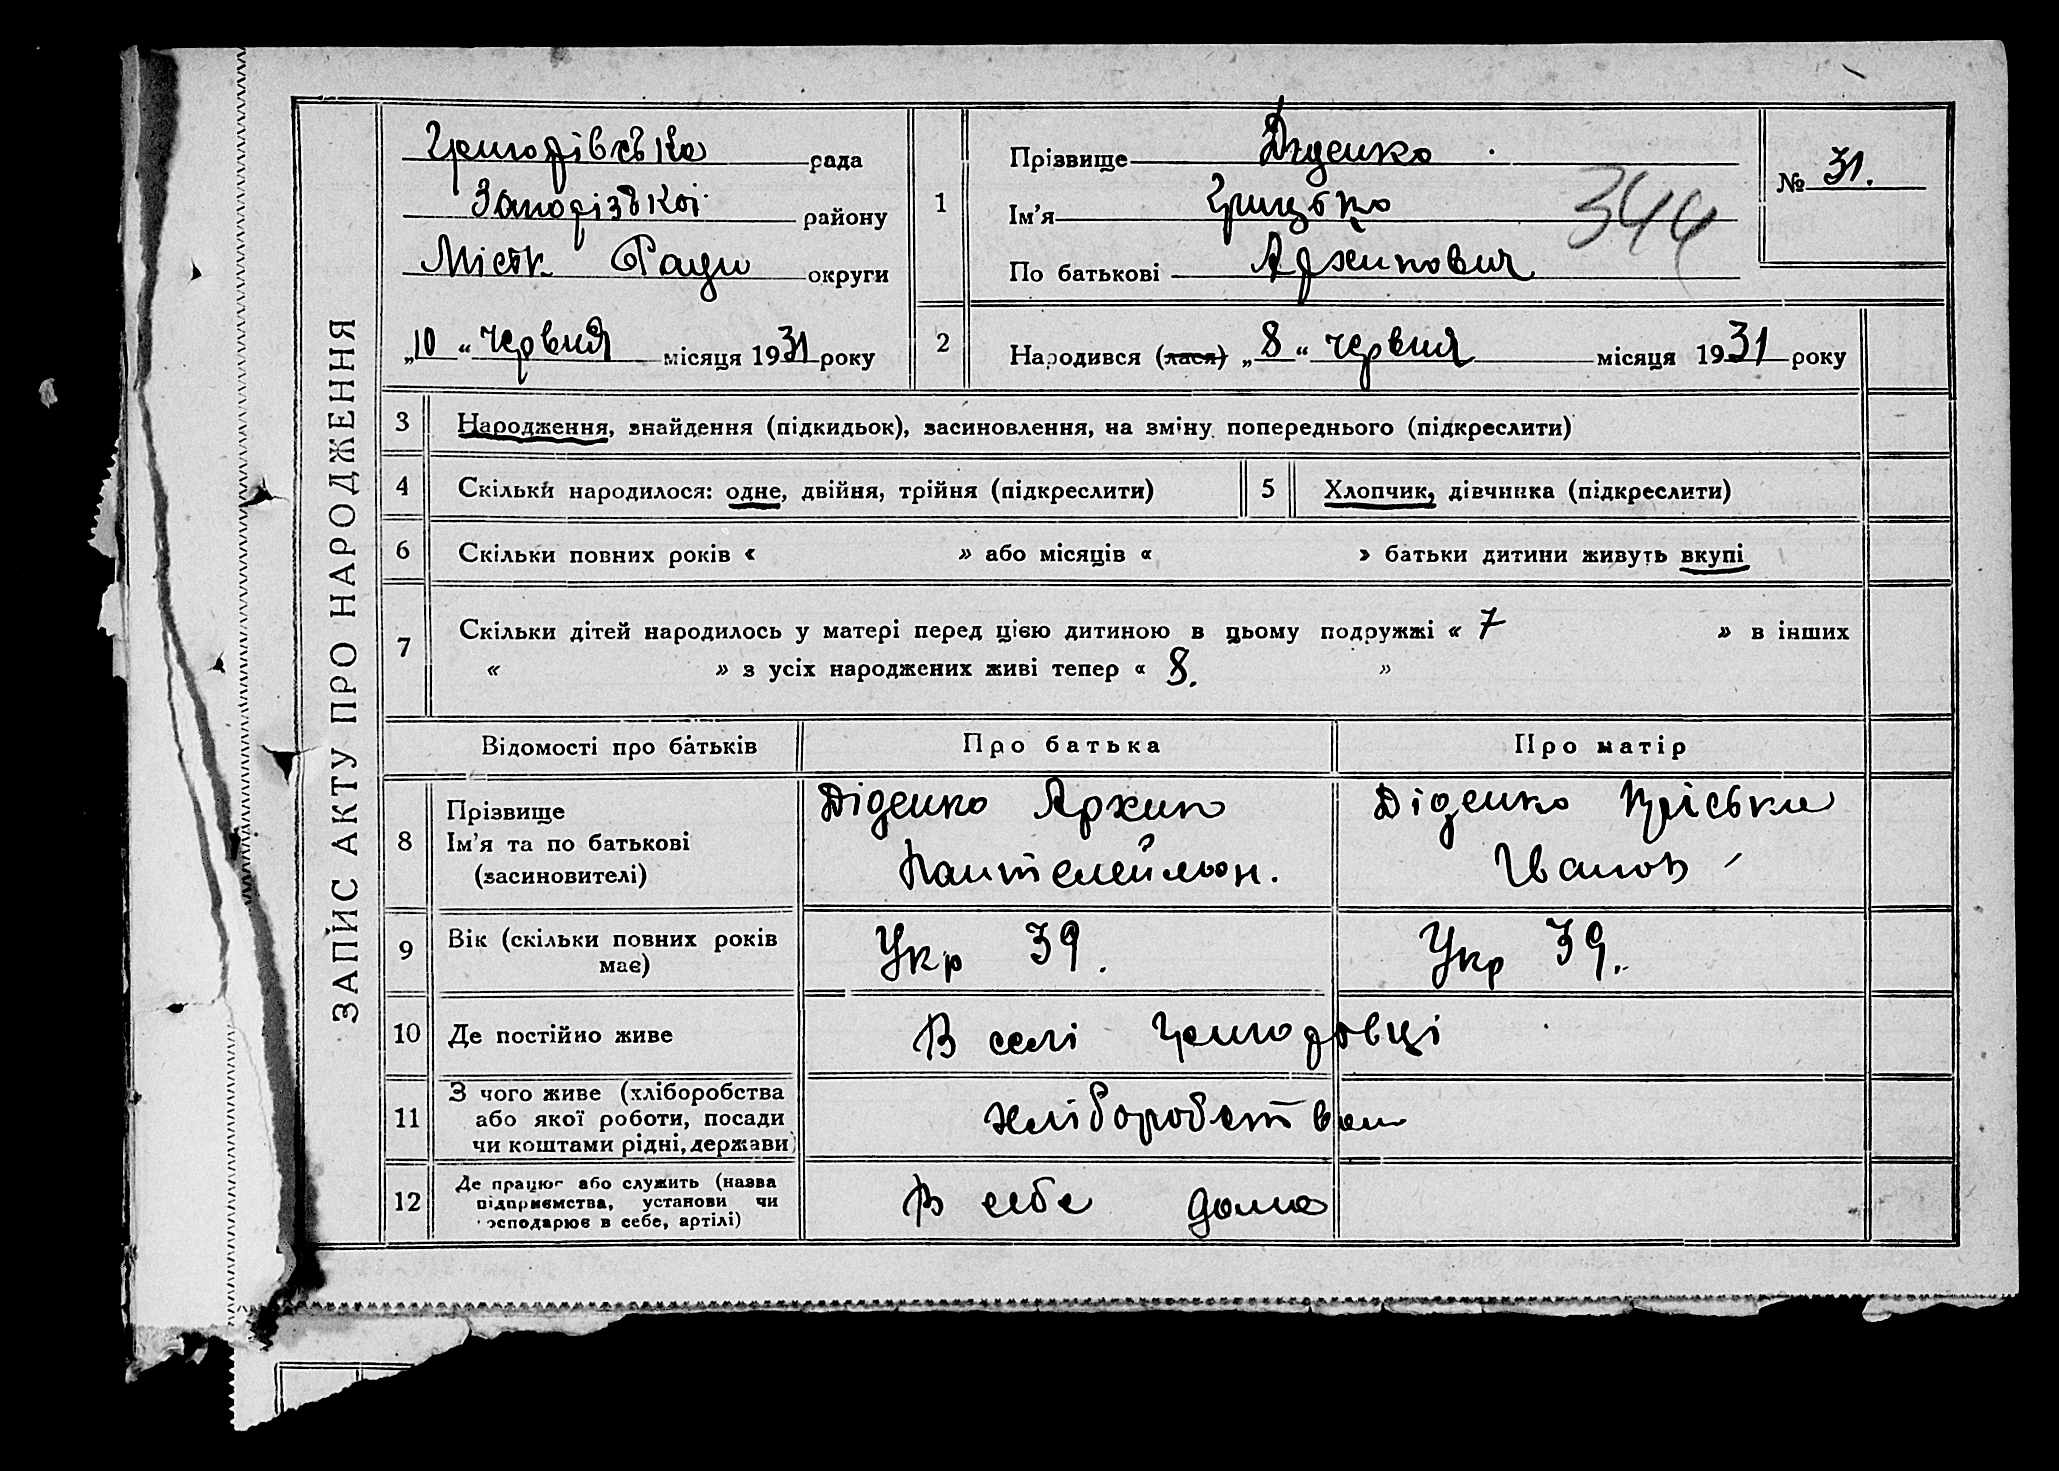 ЗАПИС АКТУ ПРО НАРОДЖЕННЯ
рада
Запорізької району
Міськ Ради округи
„10“ червня місяця 1931 року
1
Прізвище Діденко
Ім’я Грицько
По батькові Архипович
344
№ 31.
2
Народився (лася) „8“ червня місяця 1931 року
3 Народження, знайдення (підкидьок), засиновлення, на зміну попереднього (підкреслити)
4 Скільки народилося: одне, двійня, трійня (підкреслити) 5 Хлопчик, дівчинка (підкреслити)
6 Скільки повних років « » або місяців « » батьки дитини живуть вкупі
7 Скільки дітей народилось у матері перед цією дитиною в цьому подружжі « 7 » в інших
« » з усіх народжених живі тепер « 8. »
Відомості про батьків Про батька Про матір
8 Прізвище
Ім’я та по батькові
(засиновителі)
Діденко Архип
Діденко
Іванов
9 Вік (скільки повних років
має)
Укр 39. Укр 39.
10 Де постійно живе В селі
11 З чого живе (хліборобства
або якої роботи, посади
чи коштами рідні, держави)
хліборобством
12 Де працює або служить (назва
підприємства, установи чи
господарює в себе, артілі)
В себе дома